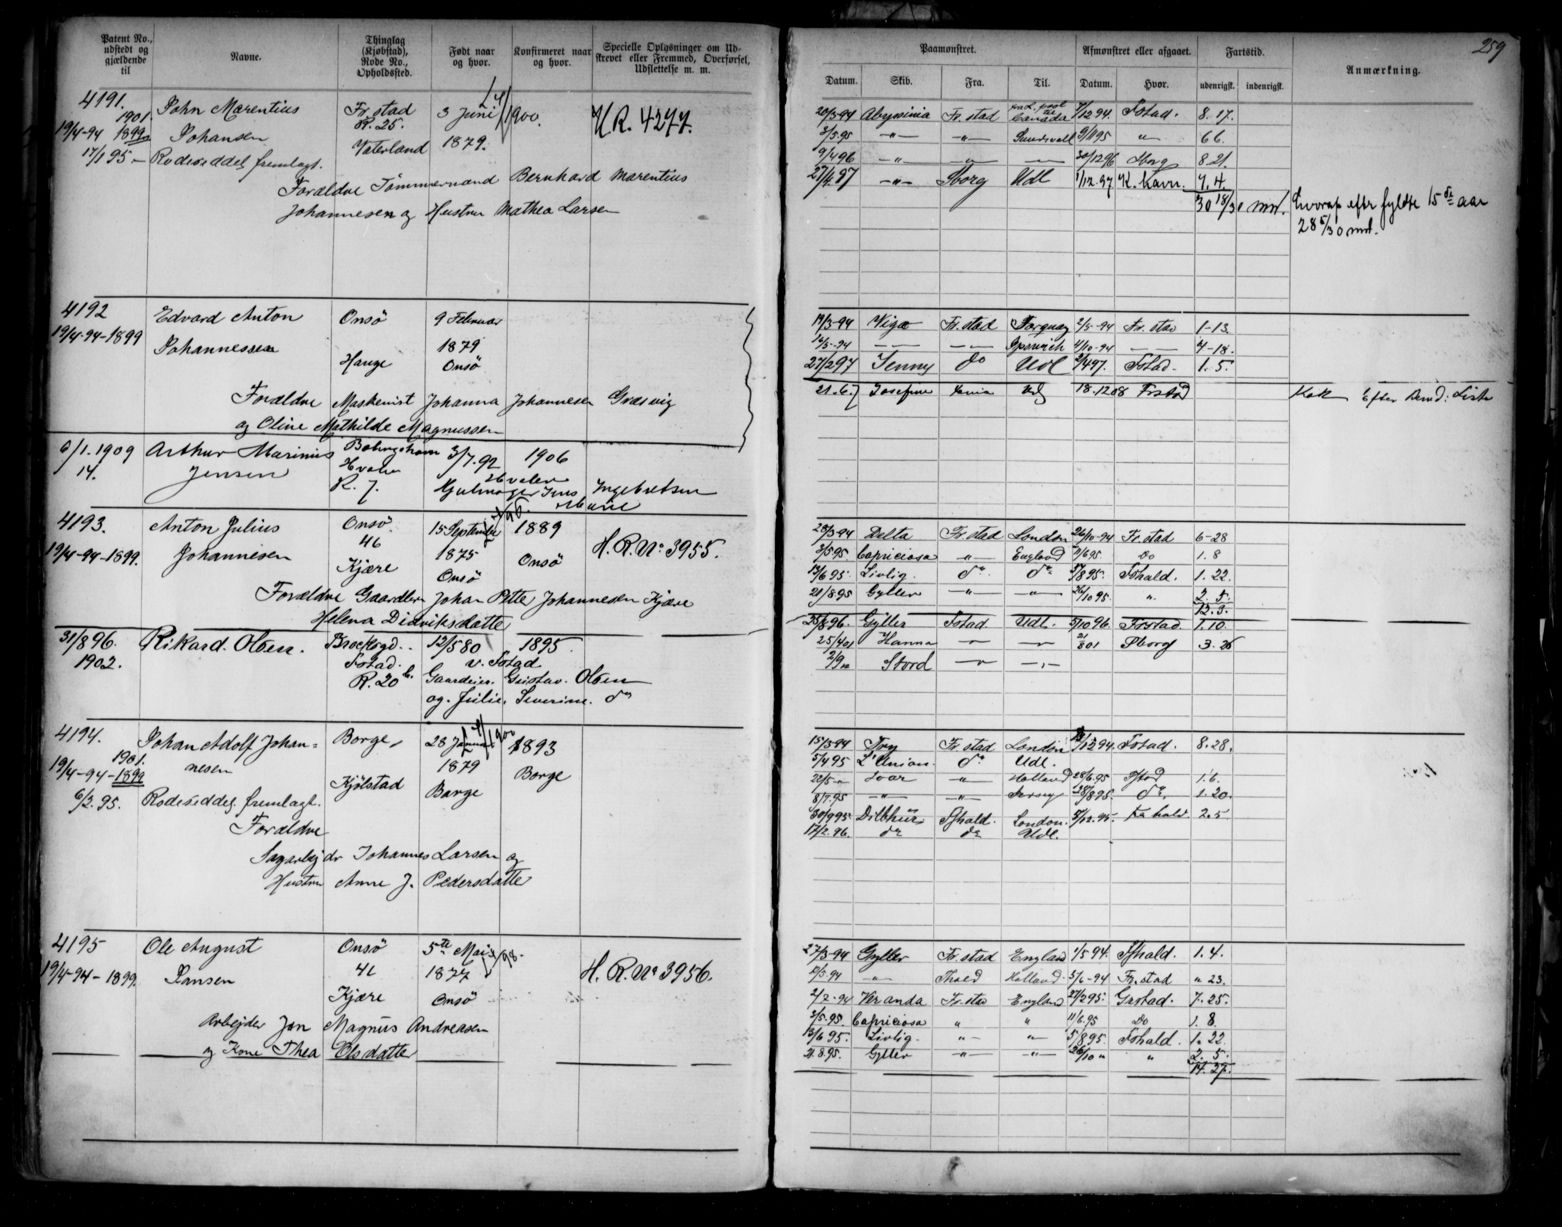 259
Patent No., udstedt og gjældende til
Navne.
Thinglag (Kjøbstad), Rode No., Opholdssted.
Født naar og hvor.
Konfirmeret naar og hvor.
Specielle Oplysninger om Udstrevet eller Fremmed, Overførsel, Udslettelse m. m.
Paamønstret.
Datum. Skib. Fra. Til.
Afmønstret eller afgaaet.
Datum. Hvor.
Fartstid.
udenrigst. indenrigst.
Anmærkning.
4191. John Marentius Fr.stad 3 Juni 1/4 1900. H.R. 4277.
1901 R. 25.
19/4-94 1899 Johansen Vaterland 1879.
17/1 95 – Rodeseddel fremlagt.
Forældre Tømmermand Bernhard Marentius
Johannesen og Hustru Mathea Larsen
20/3-94 Abysinia Fr.stad Canada /12 94. Fstad. 8. 17.
3/5.95 —"— —"— Sundsvall 9/11 95 " 6 6.
9/4 96 —"— —"— 30/12 96 Sborg 8. 21
27/4 97 —"— Sborg Udl 1/12.97 K. havn. 7. 4.
30 18/30 md. fyldte 15 de aar
28 5/30 md.
4192 Edvard Anton Onsö 9 Februar
19/4-94-1899 Johannessen Hauge 1879
Onsö
Forældre Maskinist Johannes Johannesen Græsvig
og Oline Mathilde Magnussen
19/3-94 Viga Fr.stad Torquay 2/5-94 Fr.stad 1-13.
14/5-94 — — — — Ipswich 4/10-94 — — 4-18.
27/2 97 Jenny do Udl 2/4 97. Fstad. 1. 5.
21.6.7 Josefine 18.12 08 Frstad Kok Efter Liste
6/1.1909 Arthur Marinus 3/7.92 1906
14. Jensen Hvaler Hvaler
R. 7. Jens Ingebretsen
4193. Anton Julius Onsö 15 September 1889 H.R. No 3955.
19/4-94-1899. Johannesen 46 1875 Onsö
Kjære Onsö
Forældre Gaardbr. Johan Petter Johannesen Kjære
Helena Didriksdatter
28/3-94 Delta Fr.stad London 26/10-94 Fr.stad 6-28
3/5 95 Capriciosa " England 11/6 95 Do 1. 8
13/6 95. Livlig. do do 5/8 95. Fhald. 1. 22.
21/8 95 Gyller —"— —"— 26/10 95 " 2. 5.
12. 3.
31/8 96. Rikard Olsen. 12/5 80 1895.
1902. Fstad. v. Fstad
R. 20 Gaardeier. Gustav Olsen
og. Julie Severine do
25/8 96. Gyller Fstad Udl. 5/10 96 Frstad 1.10.
25/4 01 Hanna —"— —"— 21/8 01 Sborg 3. 26
2/9 02 Stord —"— —"—
4194. Johan Adolf Johan= Borge 28 Januar 1/4 1900 1893
1901. nesen
19/4-94-1899 Kjölstad 1879 Borge
6/2. 95. Rodeseddel fremlagt. Borge
Forældre
Sagarbejder Johannes Larsen og
Hustru Anne J. Pedersdatter
15/3-94 Fry Fr.stad London /12 94. Fstad. 8. 28.
5/4 95 L'Union do Udl.
22/5 " Ivar —"— Holland 28/6.95 1. 6.
8/7.95 —"— —"— Jersey 28/8 95. do 1. 20.
30/9 95 Dilbhur Fhald. London. 5/12.95. Fr.hald 2. 5
17/2.96. do do Udl.
4195 Ole August Onsö 5te Mai H.R. No 3956.
19/4-94-1899. Jansen 46 1877
Kjære Onsö
Arbejder Jan Magnus Andreasen
og Kone Thea Olsdatter
27/3-94 Gyller Fr.stad England 1/5 94. Fhald. 1. 4.
12/5 94 —"— Fhald Holland. 5/6-94 Fr.stad " 23.
2/7-94 Veranda Fr.stad England 27/2 95. Gnstad. 7. 25.
3/5.95. Capriciosa " " 11/6.95 Do 1. 8.
13/6 95. Livlig. —"— —"— 5/8 95. Fhald. 1. 22.
21.8 95. Gyller —"— —"— 26/10 " " 2. 5.
14. 27.